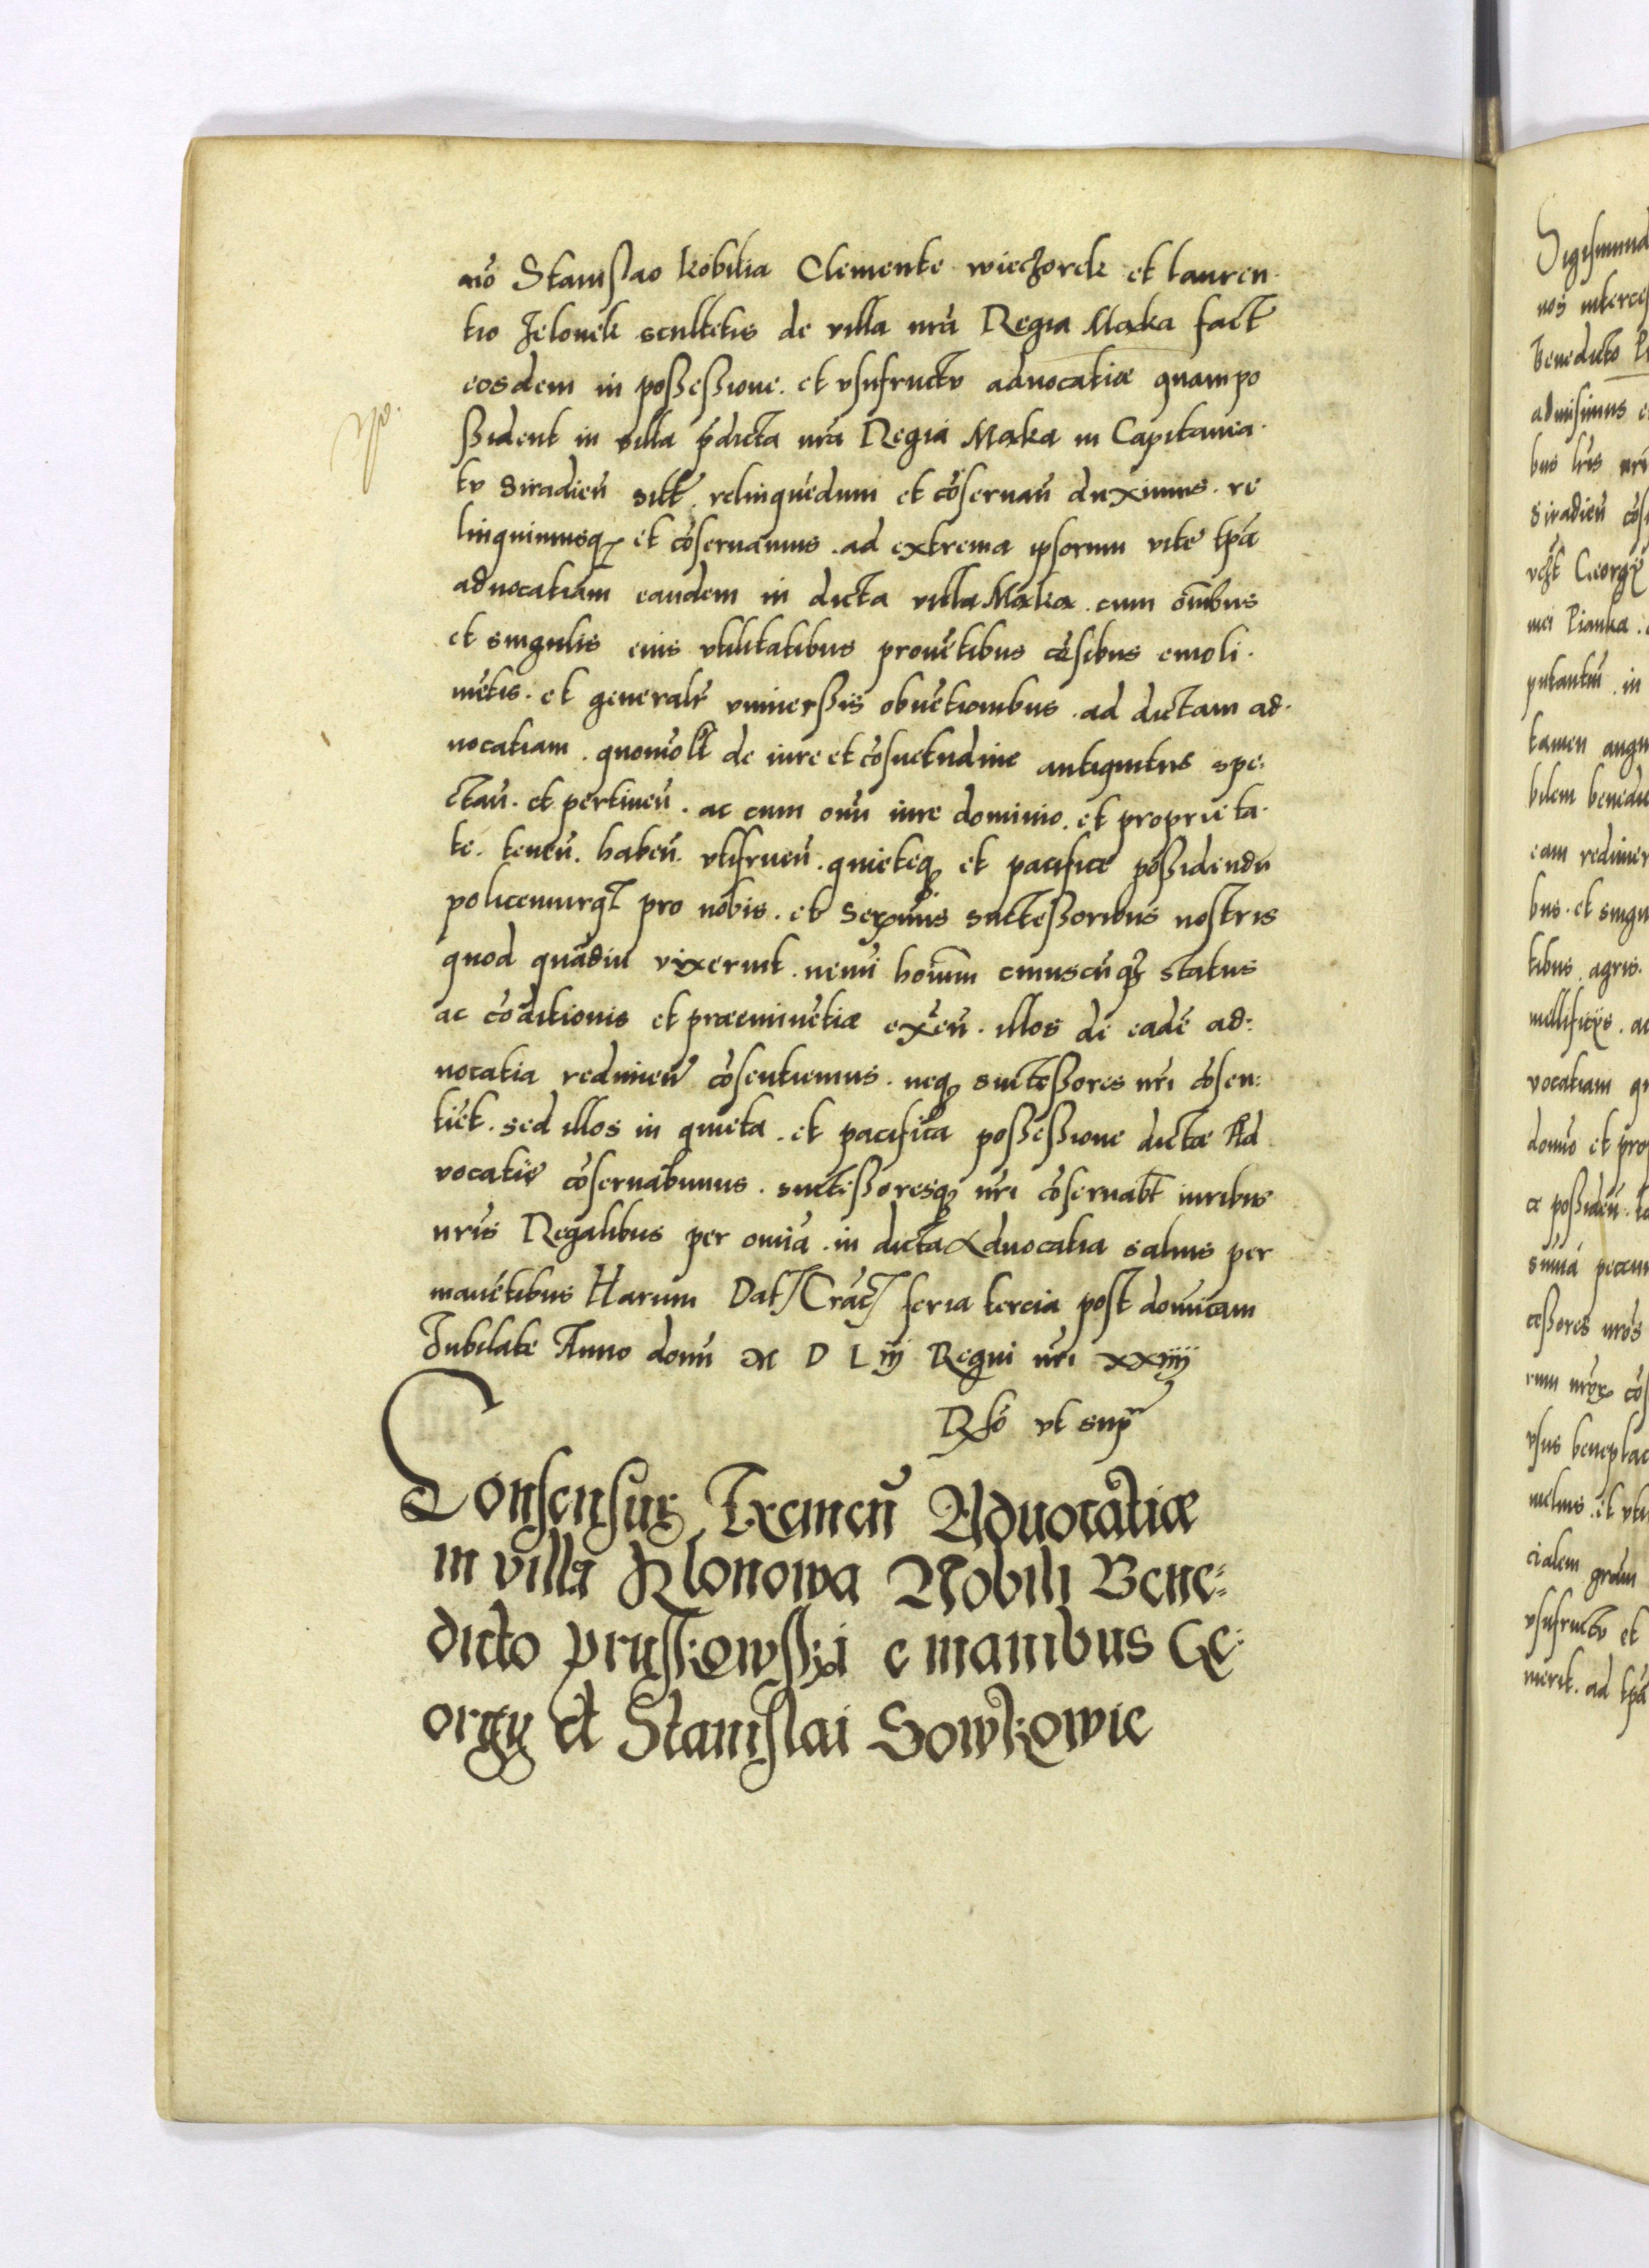 nō Stanislao kobilia Clemente wieczorek et lauren-
tio Jelonek scultetis de villa nrā Regia Maka fact
eosdem in possessione. et vsufructu aduocatiæ quam po
ssident in villa p̄dicta nrā Regia Maka in Capitanea-
tu Siradieñ. relinquēdum et cōseruañ duximus. re
linquimusq et cōseruamus. ad extrema ipsorum vite tpā
aduocatiam eandem in dicta villa Maka. cum om̄ibus
et singulis eius vtilitatibus prouētibus cēsibus emoli-
mētis. et generalr̄ vniuersis obuētionibus. ad dictam ad-
uocatiam. quomōlt de iure et cōsuetudine antiquitus spe-
ctañ. et pertineñ. ac cum om̄i iure dominio. et proprieta-
te. teneñ. habeñ. vtifrueñ. quieteq et pacifice possidendū
policemurqȝ pro nobis. et Ser̄mis successoribus nostris
quod quādiu vixerint. nemī hoīum cuiuscūqȝ status
ac cōditionis et præeminētiæ exn̄tī. illos de eadē ad-
uocatia redimeñ cōsentiemus. neq successores nr̄i cōsen-
tiēt. sed illos in quieta. et pacifica possessione dictæ Ad
uocatiæ cōseruabimus. successoresq nr̄i cōseruabt iuribus
nris Regalibus per omnia. in dicta Aduocatia saluis per
manētibus Harum Dat Crac feria tercia post domīcam
Jubilate Anno domī M D L iij Regni nri xxiiij
Rlō vt sup
Consensus Exemeñ Aduocatiæ
in villa Klonowa Nobili Bene-
dicto Pruskowski e manibus Ge-
orgy et Stanislai Sowkowie
Sigismund
nos interces
benedicto P
admisimus e
bus lr̄is nri
Siradieñ cōs
vcȝt Georgȳ
mei Pianka.
putantū. in
tamen augu
bilem benedi
eam redimer
bus. et singu
tibus agris.
mellificys. ac
vocatiam qu
domio et pro
e possideñ. ta
sum̄a pecun
cessores nros
rum cōs
vsus beneplac
melius. et vti
cialem gram
vsufructu et
uerit. ad tpā